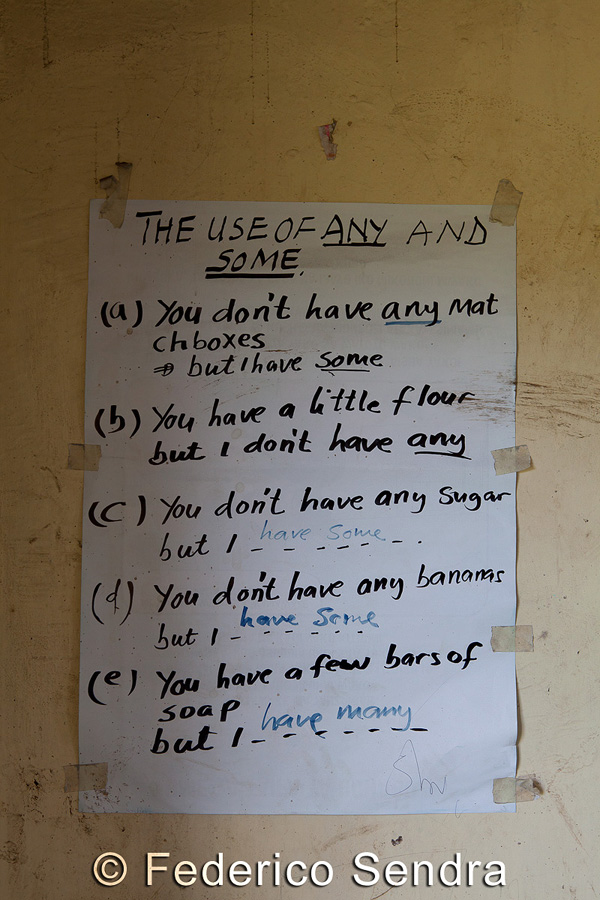 THE USE OF ANY AND
SOME.
(a) You don't have any Mat
chboxes
⇒ but I have some
(b) You have a little flour
but I don't have any
(c) You don't have any sugar
but I have some.
(d) You don't have any bananas
but I have some
(e) You have a few bars of
soap
but I have many
© Federico Sendra